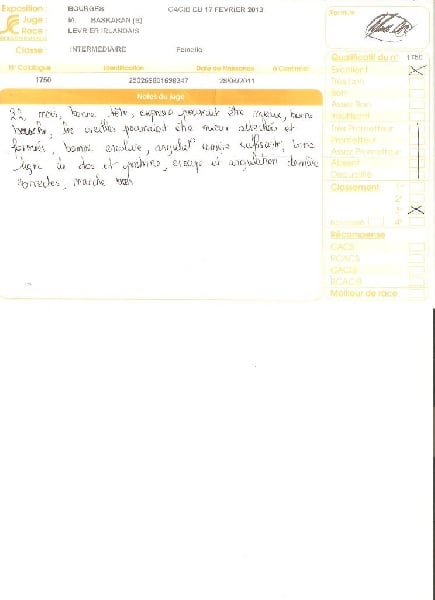 Exposition : BOURGES CACIB DU 17 FEVRIER 2013
Juge : M. BASKARAN (E)
Race : LEVRIER IRLANDAIS
Classe : INTERMEDIAIRE Femelle
N° Catalogue Identification Date de Naissance
1750 250269801698347
Notes du Juge
22 mois, bonne tête, expression pourrait être mieux, bonne
bouche, les oreilles pourraient être mieux attachées et
formées, bonne encolure, angulat° suffisante, bonne
ligne de dos et poitrine, croupe et angulation derrière
correctes, marche bien
Signature
Qualificatif du n° 1750
Excellent
Très bon
Bon
Assez Bon
Insuffisant
Très Prometteur
Prometteur
Assez Prometteur
Absent
Disqualifié
Classement 1er
2e
3e
4e
Récompense
CACS
RCACS
CACIB
RCACIB
Meilleur de race